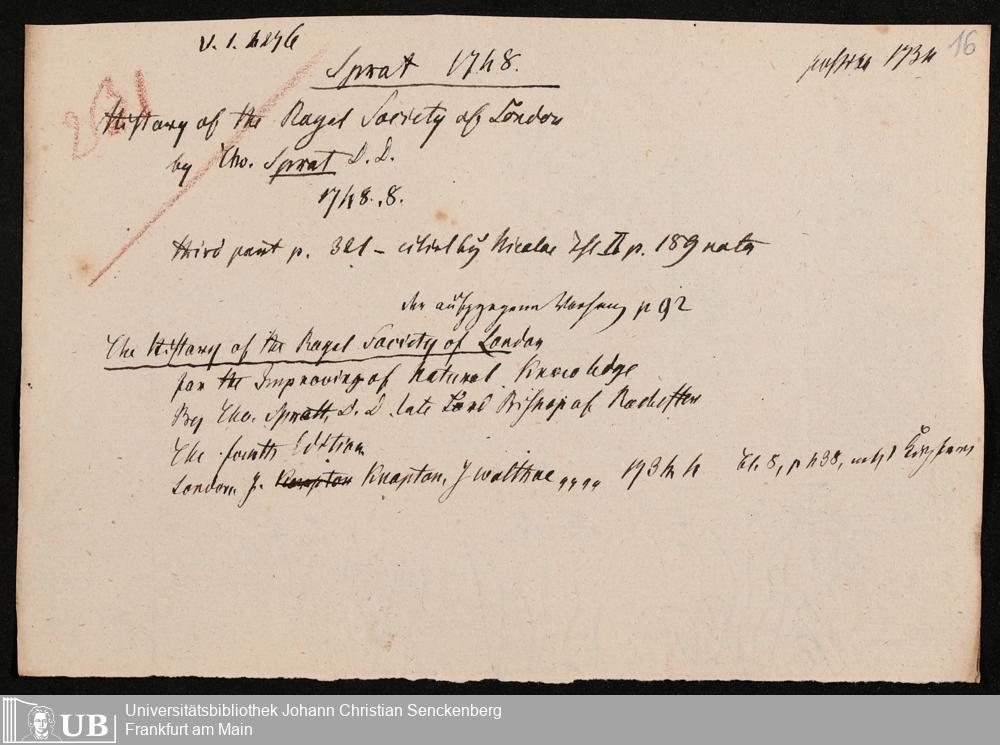 V. 1. 4246
Sprat 1748.
1734
16
History of the Royal Society of London
by Tho. Sprat D. D.
1748. 8.
third part p. 321 – citirt by Nicolai II p. 189 nota
p 92
The History of the Royal Society of London
for the Improoving of Natural Knowledge
By Tho. Spratt, D. D late Lord Bishop of Rochester
The fourth Edition.
London, J. Knapton Knapton, J walthoe 1734 4 Bl. 8, p 438, nebst
UB
Universitätsbibliothek Johann Christian Senckenberg
Frankfurt am Main